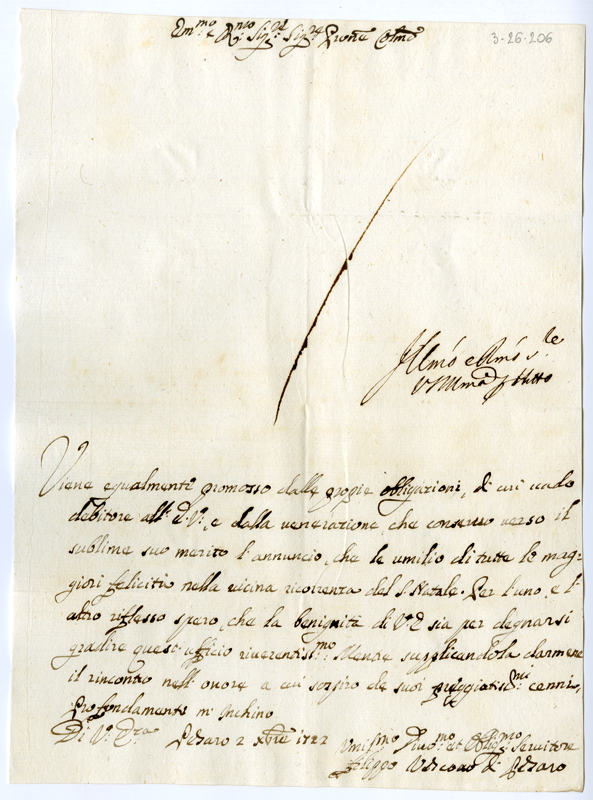 Em.mo e R.mo Sig.r Sig.r Prone Colmo
3-26-206
Illmo e Rmo
Viene egualmente promosso dalle propie obligazioni, di cui uado
debitore all' E.V., e dalla venerazione, che conseruo verso il
sublime suo merito l'annuncio, che le umilio di tutte le mag-
giori felicità nella vicina ricorrenza del S. Natale. Per l'uno, e l'-
altro riflesso spero, che la benignità di V. E sia per degnarsi
gradire questo uffizio riverentis.mo Mentre supplicandola darmene
il rincontro nell' onore a cui sospiro de suoi preggiatis.mi cenni,
Profondamente m' Inchino
Di V. E.za Pesaro 2 Xbre 1722
Umil.mo Diuo.mo et Oblig.mo Seruitore
Filippo Vescouo di Pesaro